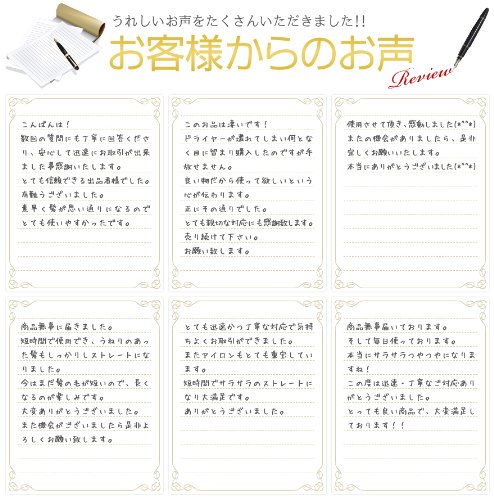 うれしいお声をたくさんいただきました!!
お客様からのお声
Review
こんばんは！
数回の質問にも丁寧に回答くださ
り、安心して迅速にお取引が出来
ました事感謝いたします。
とても信頼できる出品者様でした。
有難うございました。
素早く髪が思い通りになるので
とても使いやすかったです。
このお品は凄いです！
ドライヤーが壊れてしまい何とな
く目に留まり購入したのですが手
放せません。
良い物だから使って欲しいという
心が伝わります。
正にその通りでした。
とても親切な対応にも感謝致します。
売り続けて下さい。
お願い致します。
使用させて頂き、感動しました(*^^*)
またの機会がありましたら、是非
宜しくお願いいたします。
本当にありがとうございました(*^^*)
商品無事に届きました。
短時間で使用でき、うねりのあっ
た髪もしっかりしストレートにな
りました。
今はまだ髪の毛が短いので、長く
なるのが楽しみです。
大変ありがとうございました。
また機会がございましたら是非よ
ろしくお願い致します。
とても迅速かつ丁寧な対応で気持
ちよくお取引ができました。
またアイロンもとても重宝してい
ます。
短時間でサラサラのストレートに
なり大満足です。
ありがとうございました。
商品無事届いております。
そして毎日使っております。
本当にサラサラつやつやになりま
すね！
この度は迅速・丁寧なご対応あり
がとうございました。
とっても良い商品で、大変満足し
ております！！